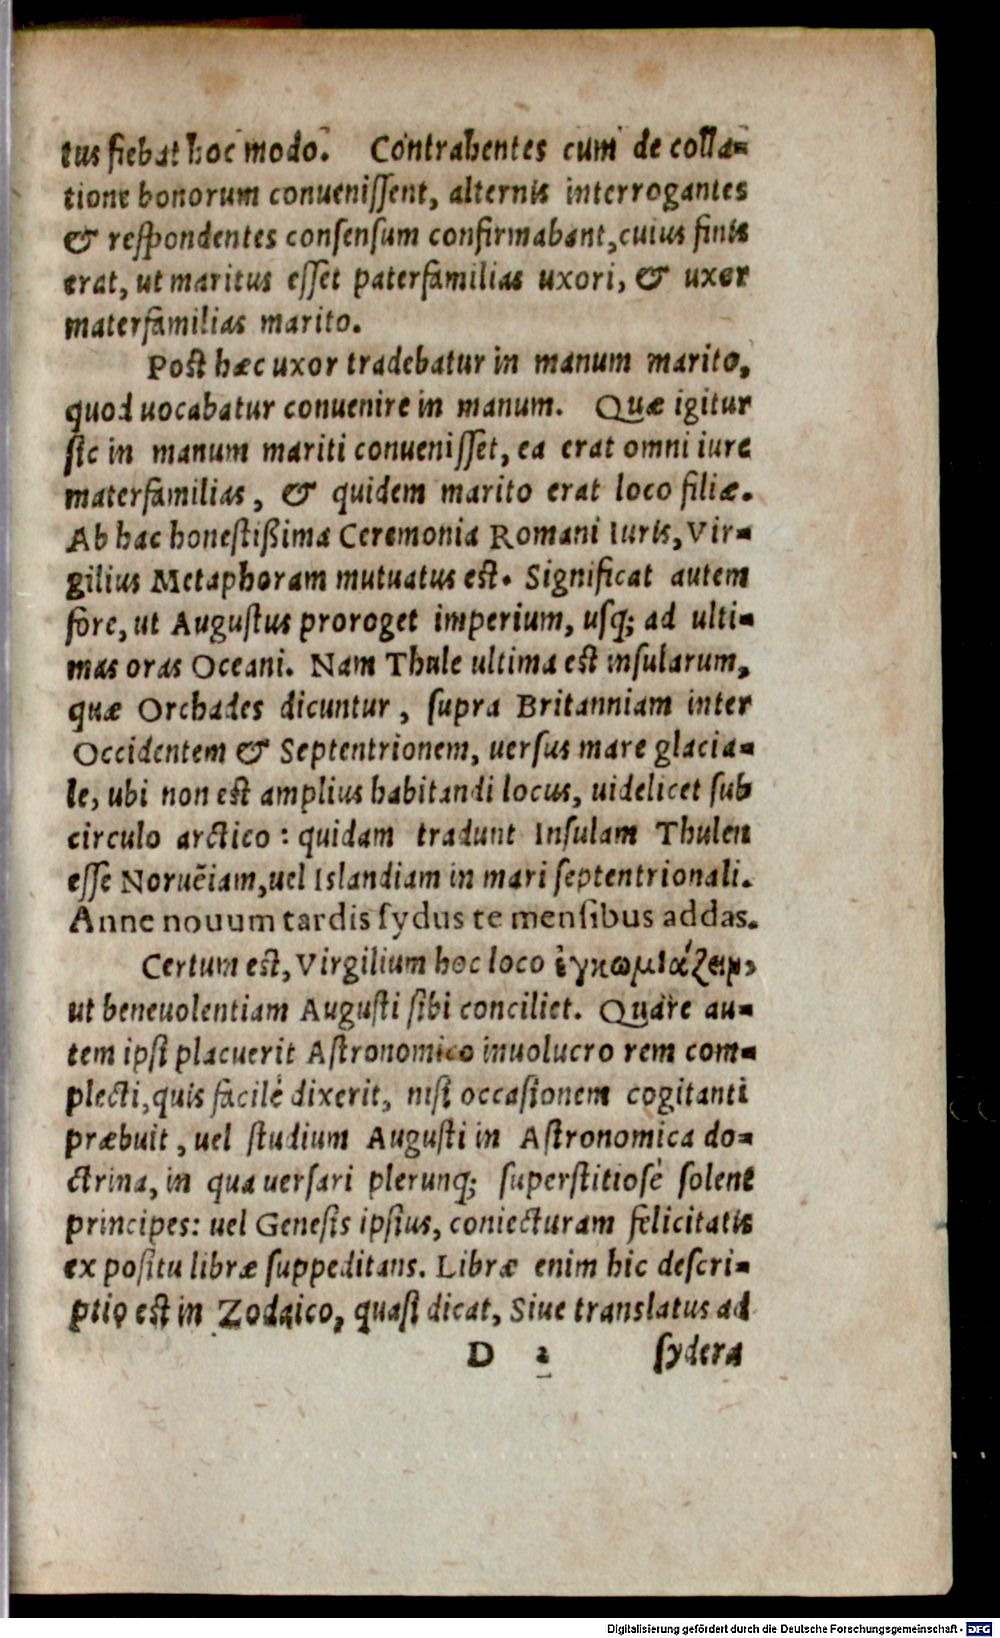 tus fiebat hoc modo. Contrahentes cum de colla-
tione bonorum conuenissent, alternis interrogantes
& respondentes consensum confirmabant, cuius finis
erat, ut maritus esset paterfamilias uxori, & uxor
materfamilias marito.
Post hæc uxor tradebatur in manum marito,
quod uocabatur conuenire in manum. Quæ igitur
sic in manum mariti conuenisset, ea erat omni iure
materfamilias, & quidem marito erat loco filiæ.
Ab hac honestißima Ceremonia Romani Iuris, Vir-
gilius Metaphoram mutuatus est. Significat autem
fore, ut Augustus proroget imperium, usq; ad ulti-
mas oras Oceani. Nam Thule ultima est insularum,
quæ Orchades dicuntur, supra Britanniam inter
Occidentem & Septentrionem, uersus mare glacia-
le, ubi non est amplius habitandi locus, uidelicet sub
circulo arctico: quidam tradunt Insulam Thulen
esse Noruẽiam, uel Islandiam in mari septentrionali.
Anne nouum tardis sydus te mensibus addas.
Certum est, Virgilium hoc loco ἐγκωμιάζειν,
ut beneuolentiam Augusti sibi conciliet. Quare au-
tem ipsi placuerit Astronomico inuolucro rem com-
plecti, quis facilè dixerit, nisi occasionem cogitanti
præbuit, uel studium Augusti in Astronomica do-
ctrina, in qua uersari plerunq; superstitiosè solent
principes: uel Genesis ipsius, coniecturam felicitatis
ex positu libræ suppeditans. Libræ enim hic descri-
ptio est in Zodaico, quasi dicat, Siue translatus ad
D 2 sydera
Digitalisierung gefördert durch die Deutsche Forschungsgemeinschaft - DFG